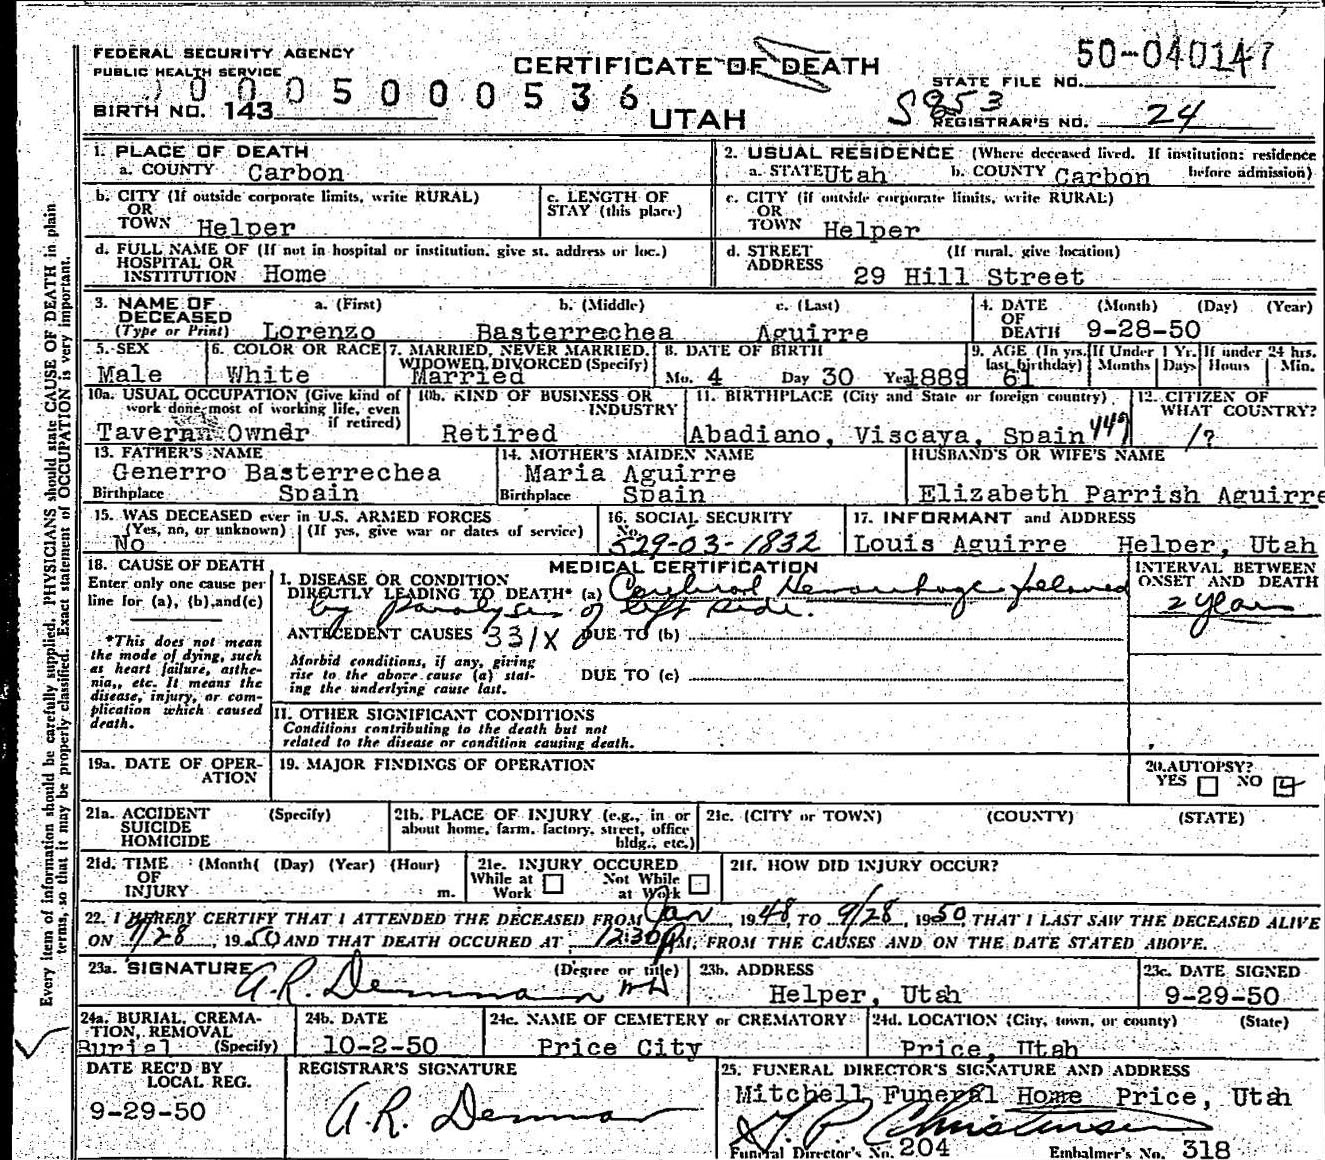 FEDERAL SECURITY AGENCY
PUBLIC HEALTH SERVICE
CERTIFICATE OF DEATH
50-040147
STATE FILE NO.
0005000536
BIRTH NO. 143
UTAH
S 853
REGISTRAR'S NO. 24
1. PLACE OF DEATH
a. COUNTY Carbon
2. USUAL RESIDENCE (Where deceased lived. If institution: residence before admission)
a. STATE Utah b. COUNTY Carbon
b. CITY (If outside corporate limits, write RURAL)
OR
TOWN Helper
c. LENGTH OF
STAY (this place)
c. CITY (if outside corporate limits, write RURAL)
OR
TOWN Helper
d. FULL NAME OF (If not in hospital or institution, give st. address or loc.)
HOSPITAL OR
INSTITUTION Home
d. STREET (If rural, give location)
ADDRESS 29 Hill Street
3. NAME OF a. (First) b. (Middle) c. (Last)
DECEASED
(Type or Print) Lorenzo Basterrechea Aguirre
4. DATE (Month) (Day) (Year)
OF
DEATH 9-28-50
5. SEX
Male
6. COLOR OR RACE
White
7. MARRIED, NEVER MARRIED,
WIDOWED, DIVORCED (Specify)
Married
8. DATE OF BIRTH
Mo. 4 Day 30 Year 1889
9. AGE (In yrs. last birthday) 61
If Under 1 Yr.
Months Days
If under 24 hrs.
Hours Min.
10a. USUAL OCCUPATION (Give kind of
work done most of working life, even
if retired)
Tavern Owner
10b. KIND OF BUSINESS OR
INDUSTRY
Retired
11. BIRTHPLACE (City and State or foreign country)
Abadiano, Viscaya, Spain
12. CITIZEN OF
WHAT COUNTRY?
/?
13. FATHER'S NAME
Generro Basterrechea
Birthplace Spain
14. MOTHER'S MAIDEN NAME
Maria Aguirre
Birthplace Spain
HUSBAND'S OR WIFE'S NAME
Elizabeth Parrish Aguirre
15. WAS DECEASED ever in U.S. ARMED FORCES
(Yes, no, or unknown) (If yes, give war or dates of service)
No
16. SOCIAL SECURITY
No.
529-03-1832
17. INFORMANT and ADDRESS
Louis Aguirre Helper, Utah
18. CAUSE OF DEATH
Enter only one cause per
line for (a), (b), and (c)
*This does not mean
the mode of dying, such
as heart failure, asthe-
nia,, etc. It means the
disease, injury, or com-
plication which caused
death.
MEDICAL CERTIFICATION
I. DISEASE OR CONDITION
DIRECTLY LEADING TO DEATH* (a) Cerebral Hemorrhage followed
by paralysis of left side.
ANTECEDENT CAUSES 331X DUE TO (b)
Morbid conditions, if any, giving
rise to the above cause (a) stat-
ing the underlying cause last.
DUE TO (c)
INTERVAL BETWEEN
ONSET AND DEATH
2 years
II. OTHER SIGNIFICANT CONDITIONS
Conditions contributing to the death but not
related to the disease or condition causing death.
19a. DATE OF OPER-
ATION
19. MAJOR FINDINGS OF OPERATION
20. AUTOPSY?
YES NO
21a. ACCIDENT (Specify)
SUICIDE
HOMICIDE
21b. PLACE OF INJURY (e.g., in or
about home, farm, factory, street, office
bldg., etc.)
21c. (CITY or TOWN) (COUNTY) (STATE)
21d. TIME (Month( (Day) (Year) (Hour)
OF
INJURY m.
21e. INJURY OCCURED
While at Work
Not While at Work
21f. HOW DID INJURY OCCUR?
22. I HEREBY CERTIFY THAT I ATTENDED THE DECEASED FROM Jan, 1948, TO 9/28, 1950, THAT I LAST SAW THE DECEASED ALIVE
ON 9/28, 1950 AND THAT DEATH OCCURED AT 12:30PM, FROM THE CAUSES AND ON THE DATE STATED ABOVE.
23a. SIGNATURE (Degree or title)
A.R. Demman MD
23b. ADDRESS
Helper, Utah
23c. DATE SIGNED
9-29-50
24a. BURIAL, CREMA-
TION, REMOVAL
Burial (Specify)
24b. DATE
10-2-50
24c. NAME OF CEMETERY or CREMATORY
Price City
24d. LOCATION (City, town, or county) (State)
Price, Utah
DATE REC'D BY
LOCAL REG.
9-29-50
REGISTRAR'S SIGNATURE
A.R. Demman
25. FUNERAL DIRECTOR'S SIGNATURE AND ADDRESS
Mitchell Funeral Home Price, Utah
Christensen
Funeral Director's No. 204 Embalmer's No. 318
Every item of information should be carefully supplied. PHYSICIANS should state CAUSE OF DEATH in plain
terms, so that it may be properly classified. Exact statement of OCCUPATION is very important.